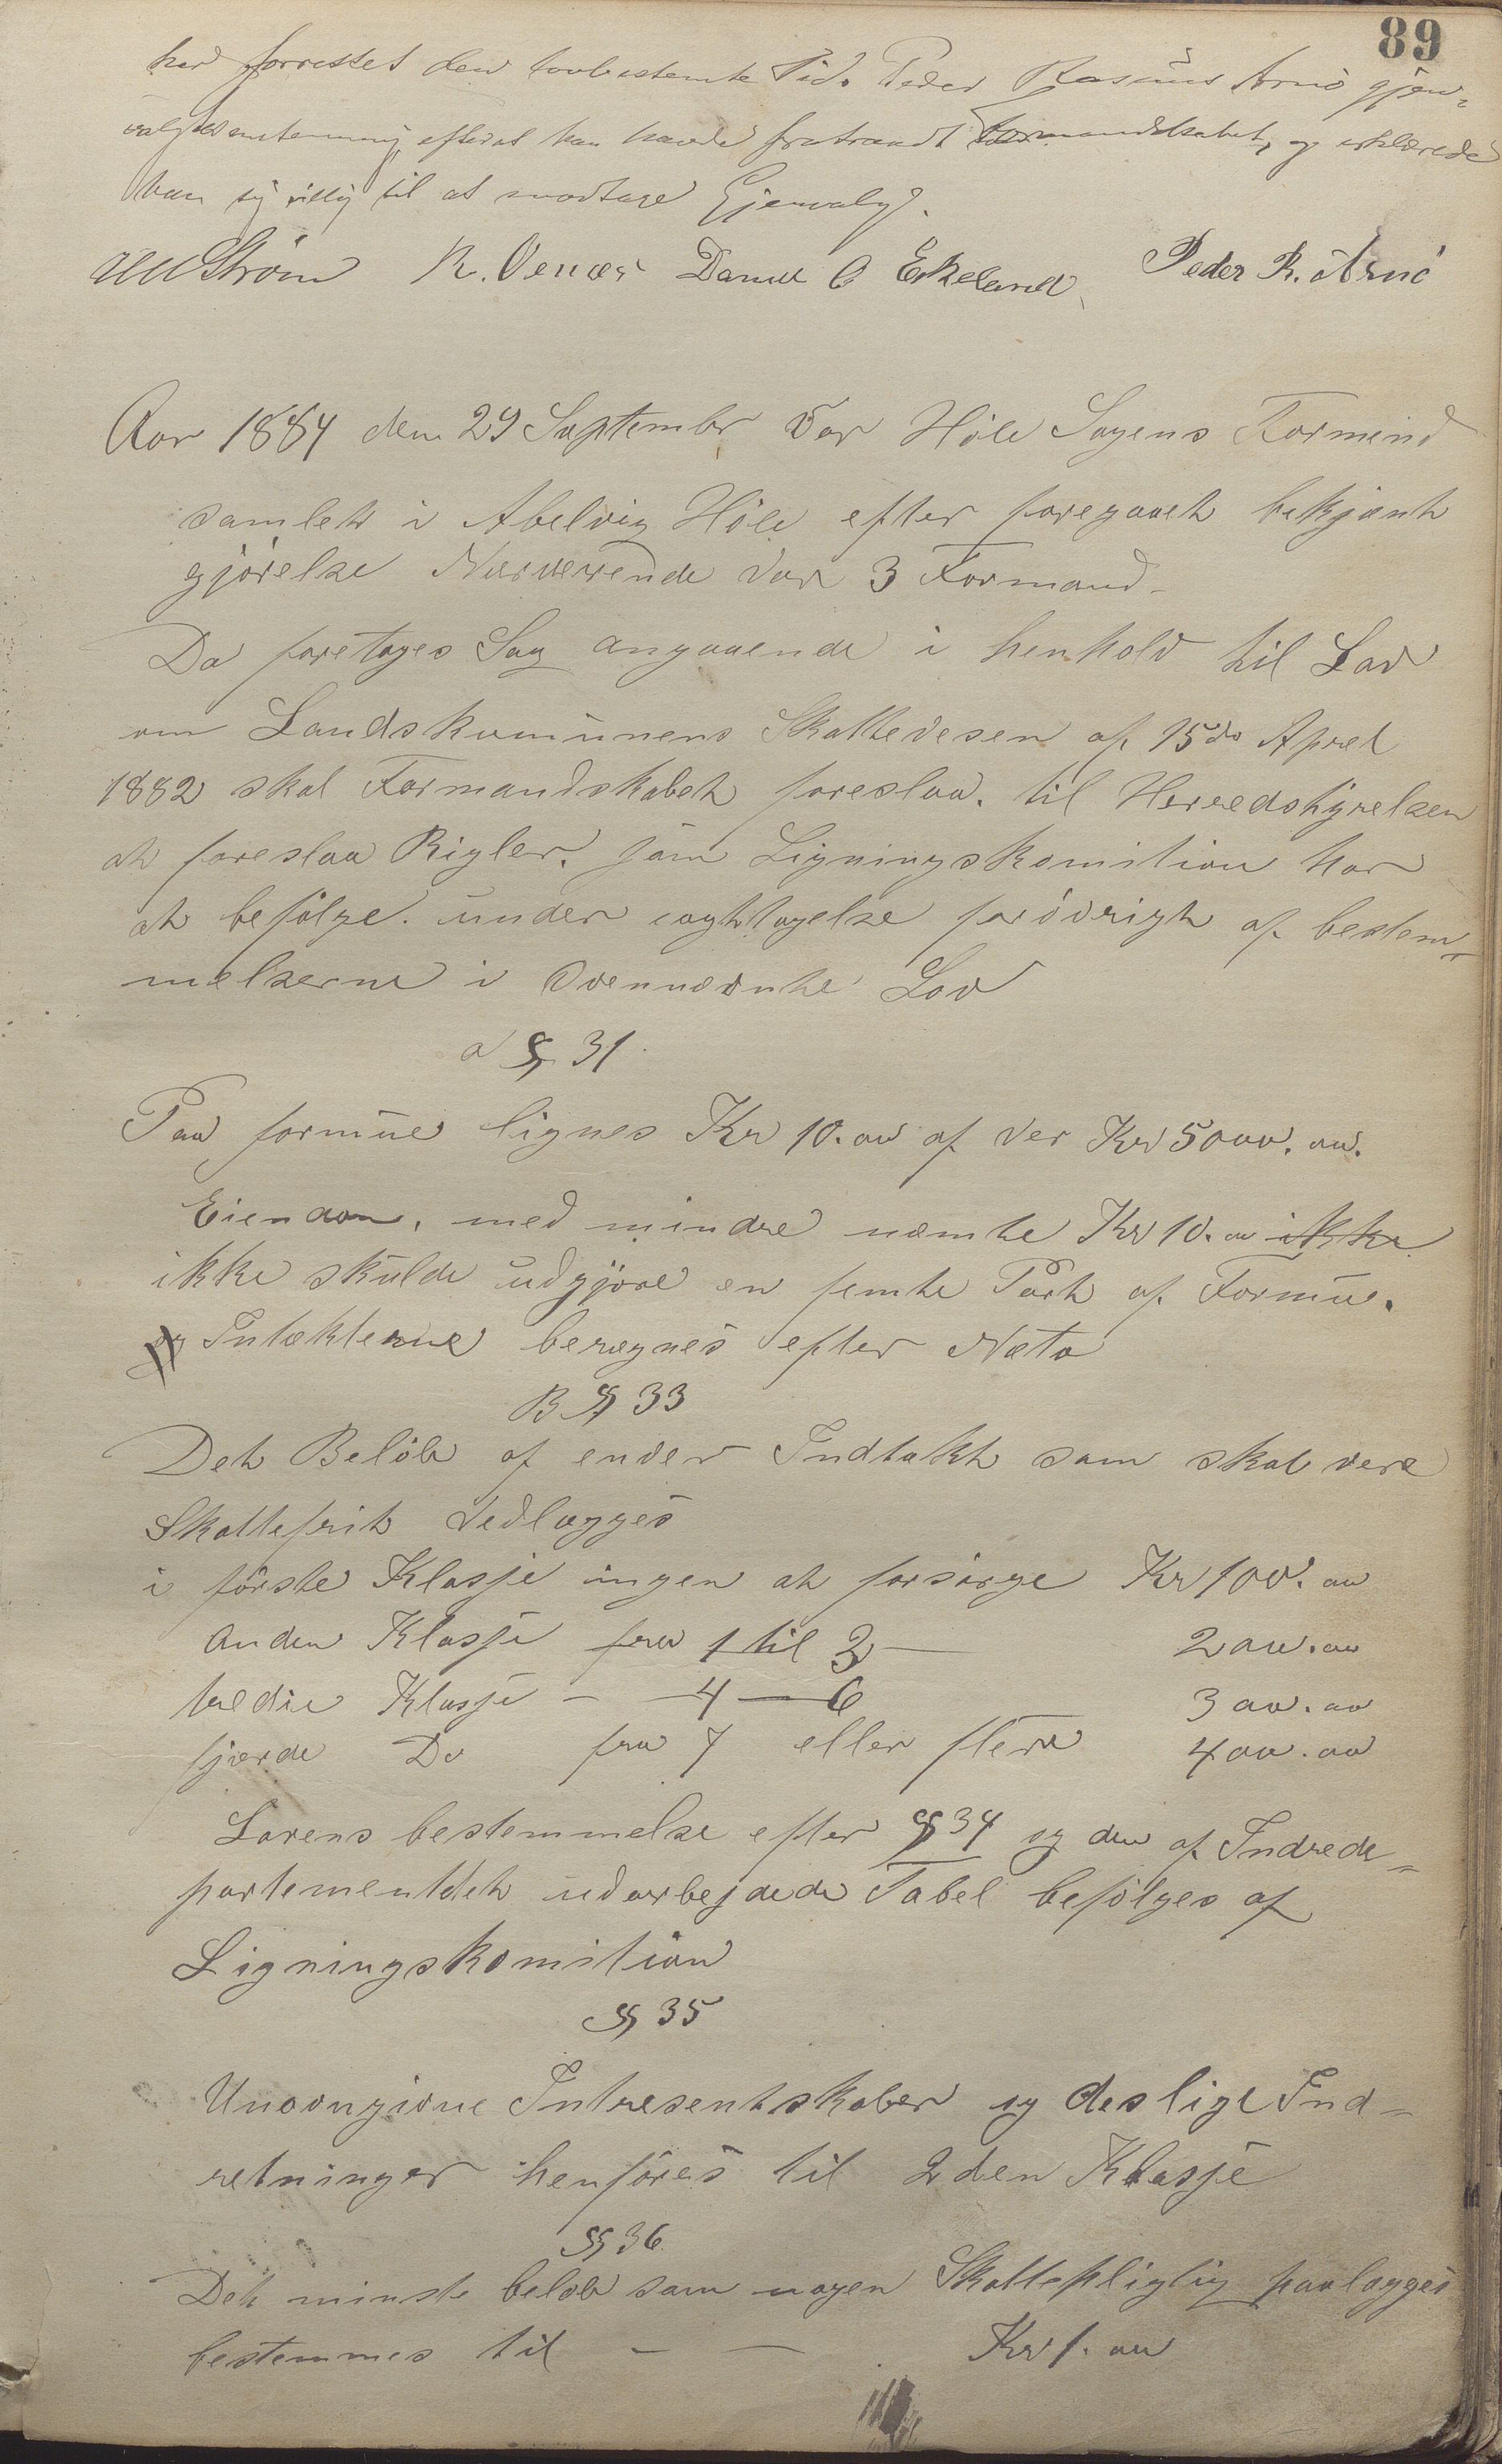 89
har forrettet den lovbestemte Tid. Peder Rasmus Arnø gjen-
valgt enstemmig, efterat han havde fratraadt Formandskabet, og erklærede
han sig villig til at modtage Gjenvalg.
Strøm R. Venaas Daniel O Eikeland Peder R. Arnø
Aar 1884 den 29 September var Høle Sogens Formend
samlet i Abelvig Høle efter foregaaet bekjent
gjørelse Nærværende var 3 Formænd.
Da foretoges Sag angaaende i henhold til Lov
om Landskomunens Skattevesen af 15de Aprel
1882 skal Formandskabet foreslaa. til Herredstyrelsen
at foreslaa Rigler. som Ligningskomition har
at befølge. under iagttagelse forøvrigt af bestem-
melserne i ovennævnte Lov
a § 31.
Paa formue lignes Kr 10.00 af ver Kr 5000.00.
Eiendom, med mindre nemte Kr 10.00 ikke
ikke skulde udgjøre en femte Part af Formue.
og Intækterne beregnes efter Neto
B § 33
Det Beløb af enver Indtækt som skal være
Skattefrit vedlægges
i første Klasse ingen at forsørge Kr 100.00
anden Klasse fra 1 til 3 — 200.00
tredie Klasse — 4 — 6 300.00
fjerde Do fra 7 eller flere 400.00
Lovens bestemmelse efter § 34 og den af Indrede-
partementdet udarbejdede Tabel befølges af
Ligningskomition
§ 35
Unavngivne Intresentskaber og deslige Ind-
retninger henføres til 2den Klasse
§ 36
Det minste beløb som nogen Skattepligtig paalægges
bestemmes til — — Kr 1.00